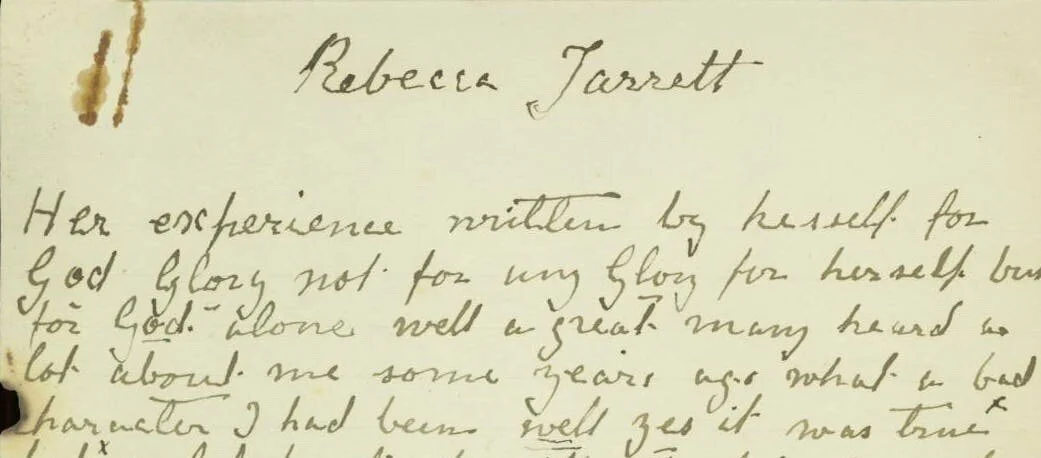 Rebecca Jarrett
Her experience written by herself for
God Glory not for any Glory for herself but
for God alone well a great many heard a
lot about me some years ago what a bad
character I had been well yes it was true x